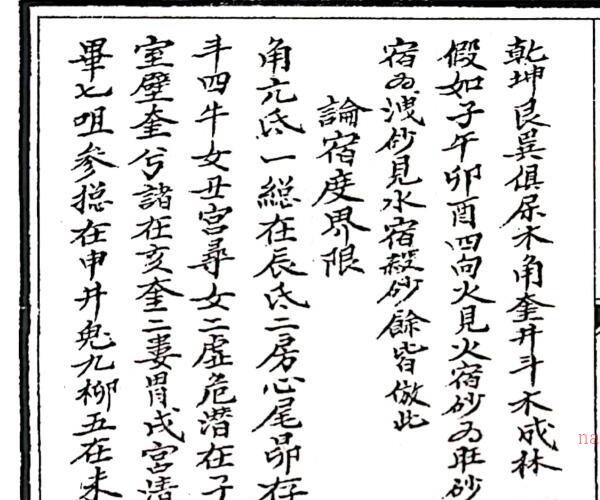 乾坤艮巽俱屬木角奎井斗木成林
假如子午卯酉四向火見火宿砂為旺砂
宿為洩砂見水宿殺砂餘皆倣此
論宿度界限
角亢氐一緫在辰氐二房心尾昴存
斗四牛女丑宮尋女二虛危潛在子
室壁奎兮諸在亥奎二婁胃戌宮清
畢七咀參捴在申井鬼九柳五在未
na